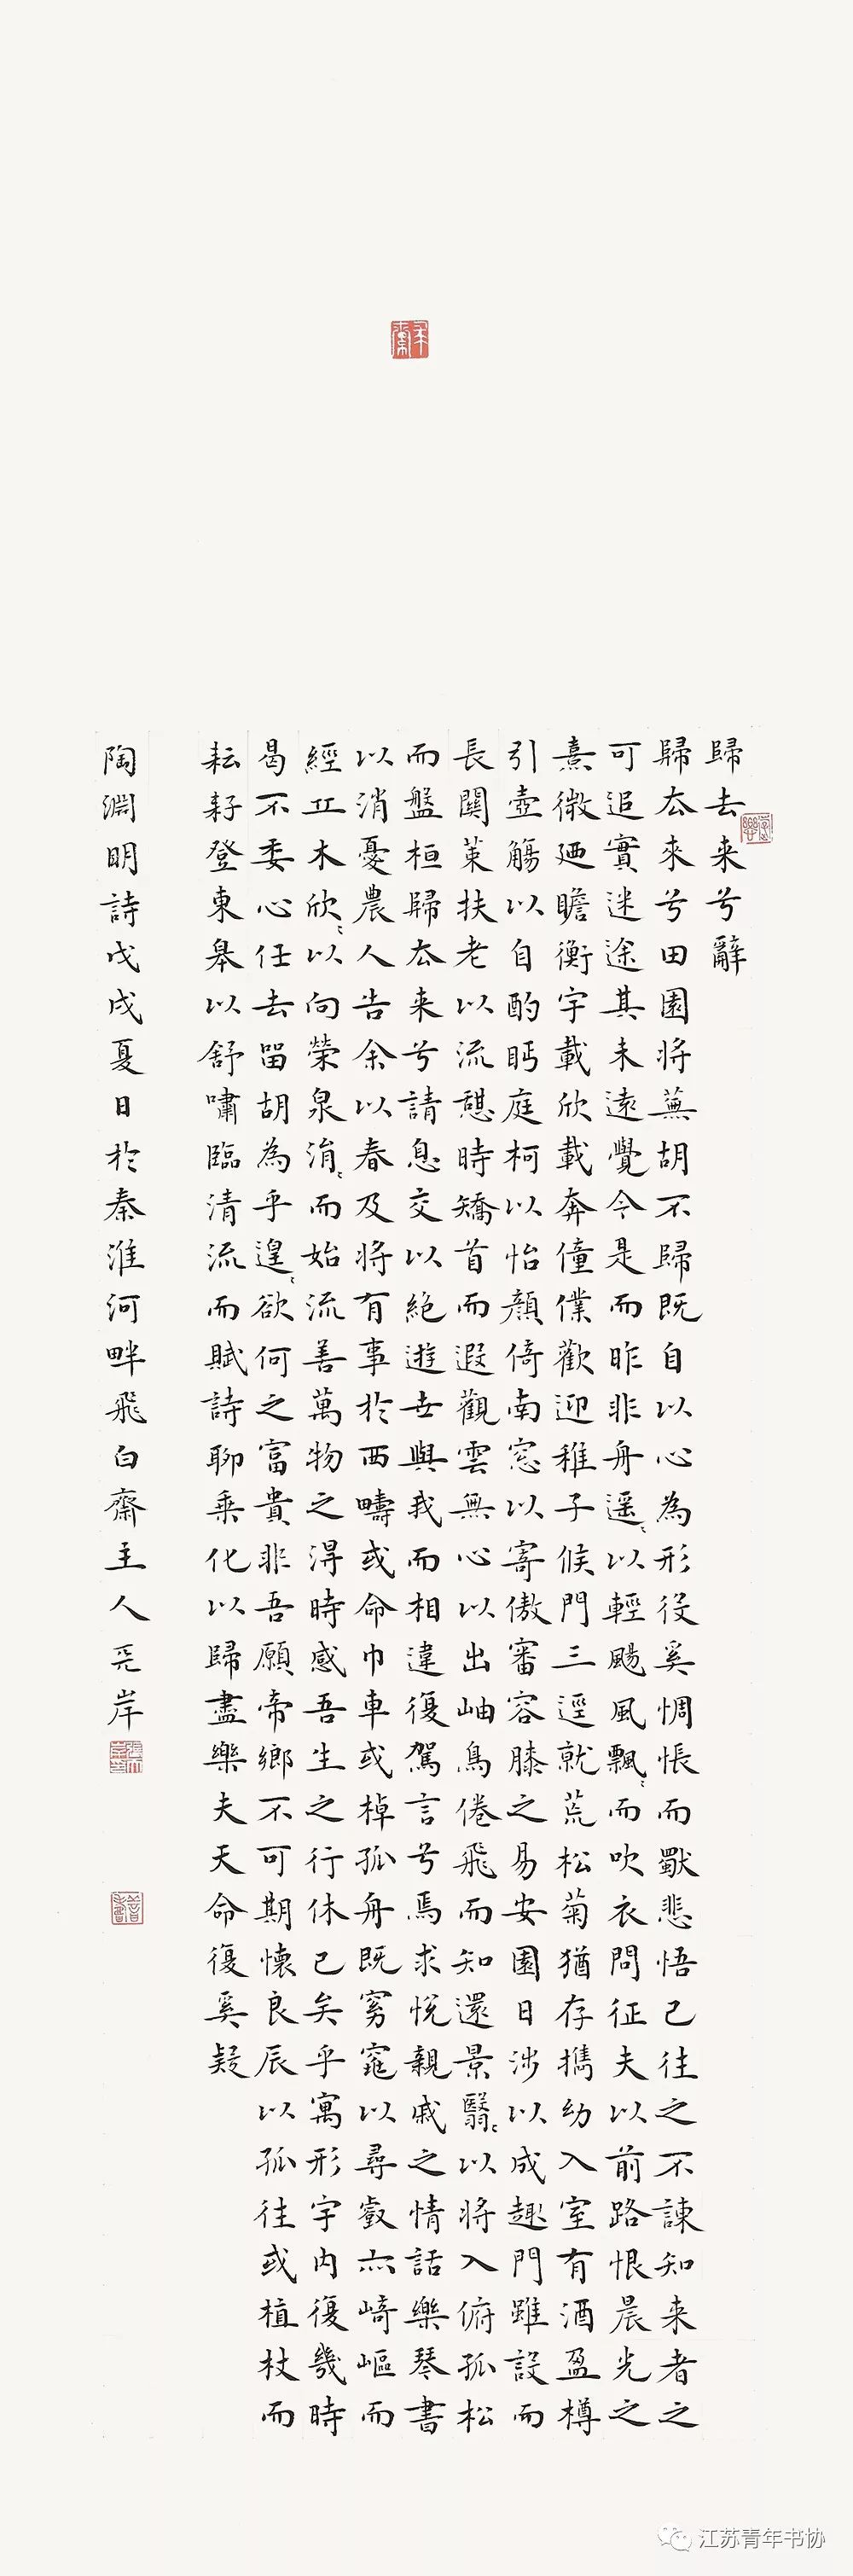 歸去来兮辭
歸厺來兮田園将蕪胡不歸既自以心為形役奚惆悵而獨悲悟已往之不諫知来者之
可追實迷途其未遠覺今是而昨非舟遥〻以輕颺風飄〻而吹衣問征夫以前路恨晨光之
熹微廼瞻衡宇載欣載奔僮僕歡迎稚子候門三逕就荒松菊猶存攜幼入室有酒盈樽
引壺觴以自酌眄庭柯以怡顏倚南窓以寄傲審容膝之易安園日涉以成趣門雖設而
長關策扶老以流憩時矯首而遐觀雲無心以出岫鳥倦飛而知還景翳〻以将入俯孤松
而盤桓歸厺来兮請息交以絕遊世與我而相違復駕言兮焉求悅親戚之情話樂琴書
以消憂農人告余以春及将有事於西疇或命巾車或棹孤舟既窈窕以尋壑亦崎嶇而
經丘木欣〻以向榮泉涓〻而始流善萬物之得時感吾生之行休已矣乎寓形宇内復幾時
曷不委心任去留胡為乎遑〻欲何之富貴非吾願帝鄉不可期懷良辰以孤往或植杖而
耘耔登東皋以舒嘯臨清流而賦詩聊乘化以歸盡樂夫天命復奚疑
陶淵明詩戊戌夏日於秦淮河畔飛白齋主人兲岸
江苏青年书协